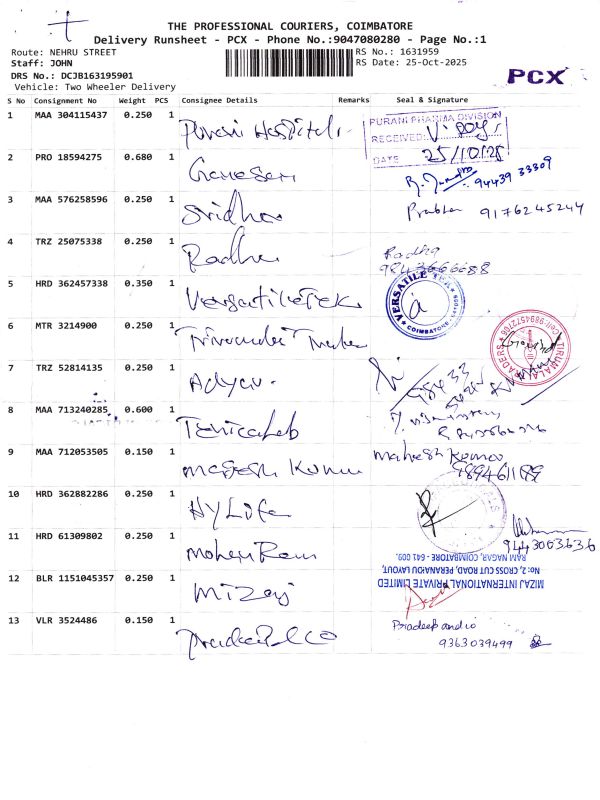 THE PROFESSIONAL COURIERS, COIMBATORE
Delivery Runsheet - PCX - Phone No.:9047080280 - Page No.:1
Route: NEHRU STREET
RS No.: 1631959
Staff: JOHN
RS Date: 25-Oct-2025
DRS No.: DCJB163195901
PCX
Vehicle: Two Wheeler Delivery
S No Consignment No Weight PCS Consignee Details Remarks Seal & Signature
1 MAA 304115437 0.250 1 Purani Hospital
PURANI PHARMA DIVISION
RECEIVED:
DATE 25/10/25
2 PRO 18594275 0.680 1 Ganesan
94439 33309
3 MAA 576258596 0.250 1 Sridhar
Prabha 9176245244
4 TRZ 25075338 0.250 1 Radha
Radha
9843666688
5 HRD 362457338 0.350 1 Versatile Tek
VERSATILE TEK
COIMBATORE
6 MTR 3214900 0.250 1
TIRUMALA TRADERS
7 TRZ 52814135 0.250 1
8 MAA 713240285 0.600 1
9 MAA 712053505 0.150 1 Magesh Kumar
Mahesh Kumar
10 HRD 362882286 0.250 1 Hy Life
9443003636
11 HRD 61309802 0.250 1 Mohan Ram
12 BLR 1151045357 0.250 1 Mizaj
MIZAJ INTERNATIONAL PRIVATE LIMITED
No: 2, CROSS CUT ROAD, PERANAIDU LAYOUT,
RAM NAGAR, COIMBATORE - 641 009.
13 VLR 3524486 0.150 1 Pradeep & Co
Pradeep and co
9363039499